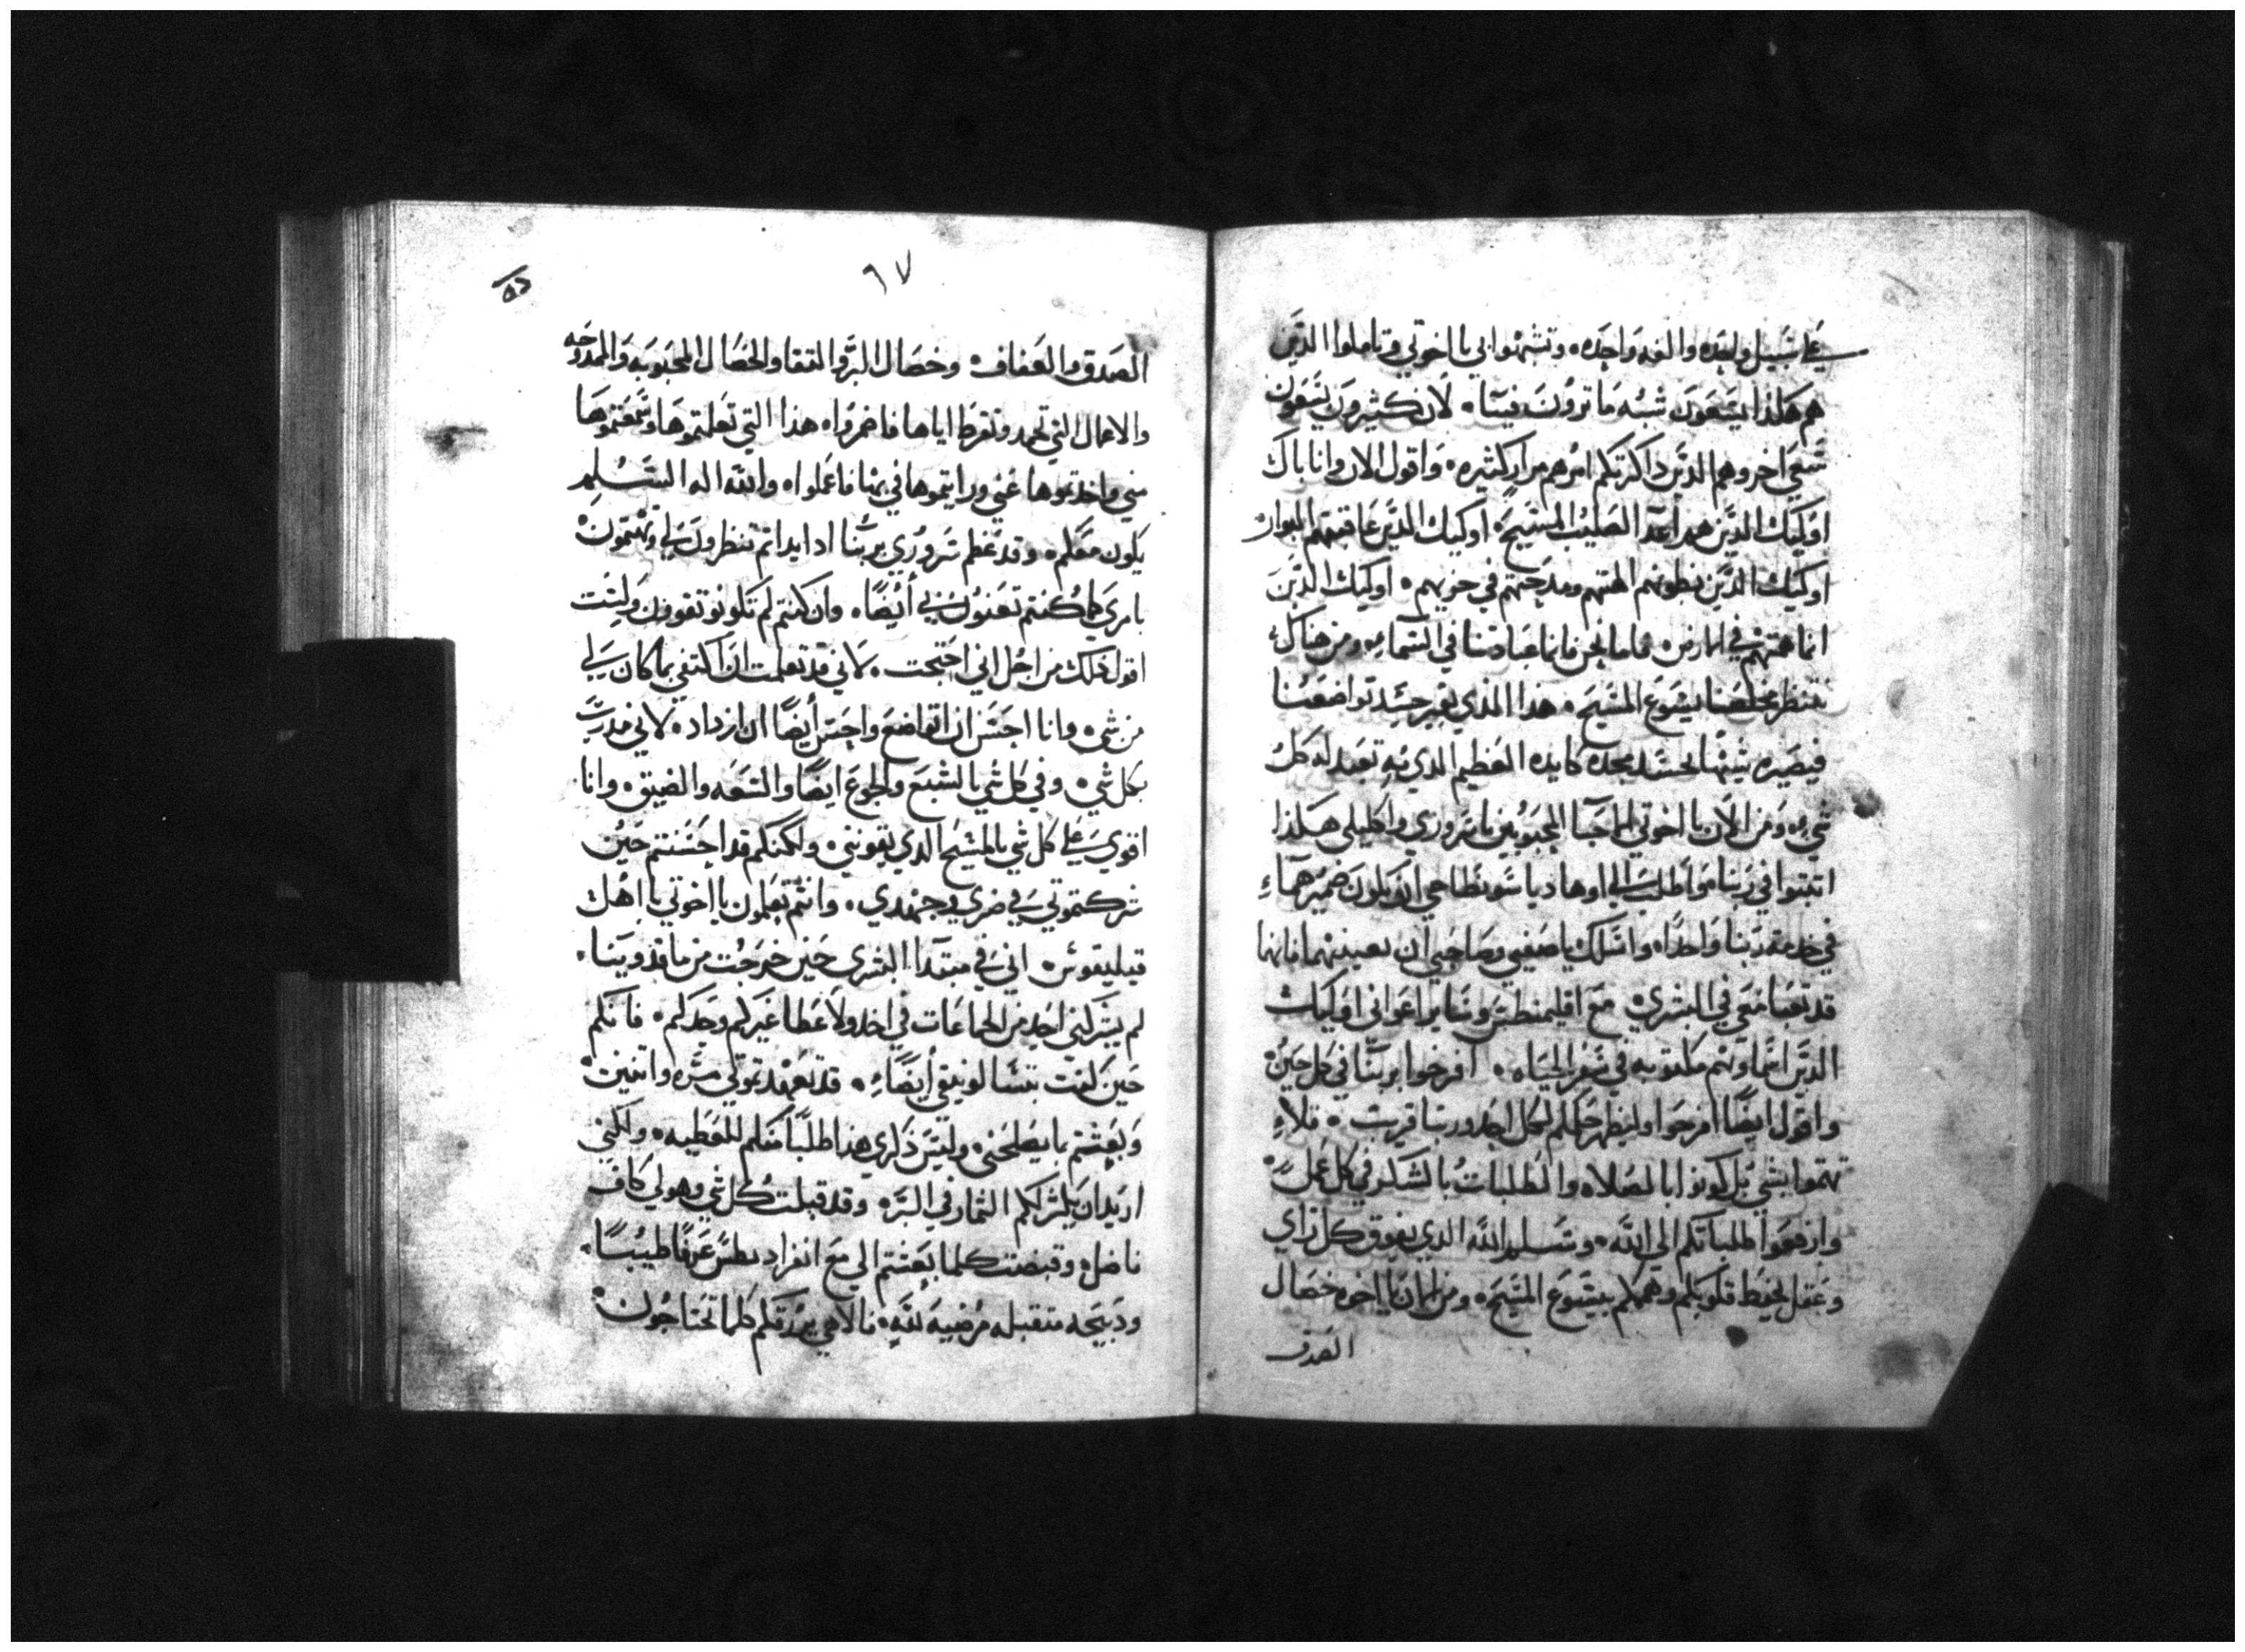 على سبيل واحده والفه واحده، وتشبهوا بي يا اخوتي وتاملوا الدين
هم هكذا يسعون شبه ما ترون فينا، لان كثيرون يسعون
سعي اخر وهم الدين داكرتكم امرهم مرار كثيره، واقول الان وانا باك
اوليك الدين هم اعدا الصليب المسيح، اوليك الدين عاقبتهم البوار
اوليك الدين بطونهم الهتهم ومدحتهم في خزيهم، اوليك الدين
انما همتهم في الارض، فاما نحن فانما عبادتنا في السماء، ومن هناك
ننتظر مخلصنا يسوع المسيح، هذا الذي يغير جسد تواضعنا
فيصيره شبيها لجسد مجده كايده العظيم الدي به تعبد له كل
شيء، ومن الان يا اخوتي الاحبا المحبوبين يا سروري واكليلي هكذا
اتبتوا في ربنا، واطلب الي اوهاديا سونطاخي ان يكون ضميرهما
في خدمة ربنا واحدا، واسلك يا صفيي وصاحبي ان تعينهما فانهما
قد تعبا معي في البشري، مع اقليمنطس وساير اعواني اوليك
الدين اسماوهم مكتوبه في سفر الحياه، افرحوا بربنا في كل حين
واقول ايضا افرحوا وليظهر حلمكم لكل احد وربنا قريب، فلا
تهتموا بشي بل كونوا بالصلاه والطلبات بالشكر في كل عمل،
وارفعوا طلباتكم الي الله، وسليم الله الدي يفوق كل راي
وعقل يحفظ قلوبكم وهممكم بيسوع المسيح، ومن الان يا اخوه خصال
الصدق
٦٧
الصدق والعفاف، وخصال البر والتقا والخصال المحبوبه والممدوحه
والاعمال التي تحمد وتقرظ اياها فاضمروا، هذا التي تعلمتموها وسمعتموها
مني واخدتموها عني ورايتموها في بها فاعملوا، والله اله السليم
يكون معكم، وقد عظم سروري بربنا اد ابداتم تنظرون لي وتهتمون
بامري كما كنتم تعنون بي أيضًا، وان كنتم لم تكونو تقوون وليست
اقول ذلك من اجل اني احتجت، لاني قد تعلمت ان اكتفي بما كان لي
من شي، وانا احسن ان اتواضع واحسن أيضًا ان ازداد، لاني مدرب
بكل شي، وفي كل شي بالشبع والجوع ايضًا والسعه والضيق، وانا
اقوي على كل شي بالمسيح الدي يقويني، ولكنكم قد احسنتم حين
شركتموني في ضري وجهدي، وانتم تعلمون يا اخوتي يا اهل
فيليقوس، اني في مبتدا البشري حين خرجت من ماقدونيا،
لم يشركني احد من الجماعات في اخد ولا عطا غيركم وحدكم، فانكم
حين كنت بتسالونيقي أيضًا، قد تعهدتموني مره واتنين
وبعثتم بما يصلحني، وليس ذكري هذا طلبًا منكم للعطيه، ولكني
اريد ان يكثر لكم الثمار في البر، وقد قبلت كل شي وهو لي كاف
فاضل، وقبضت كلما بعثتم الي مع انفراديطس عرفًا طيبًا،
ودبيحه متقبله مرضيه لله، فالاهي يرزقكم كلما تحتاجون